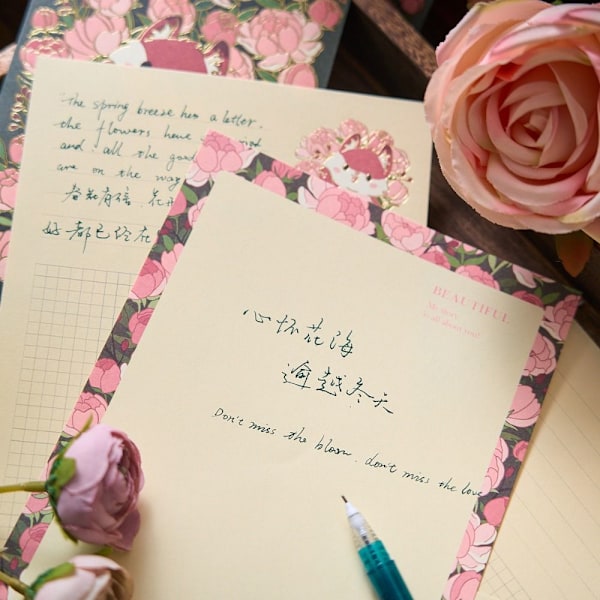 The spring breeze has a letter,
the flowers have
and all the good
are on the way
春花有信,花开
好都已经在
BEAUTIFUL
all about you
心怀花海
逾越冬天
Don't miss the bloom. don't miss the love